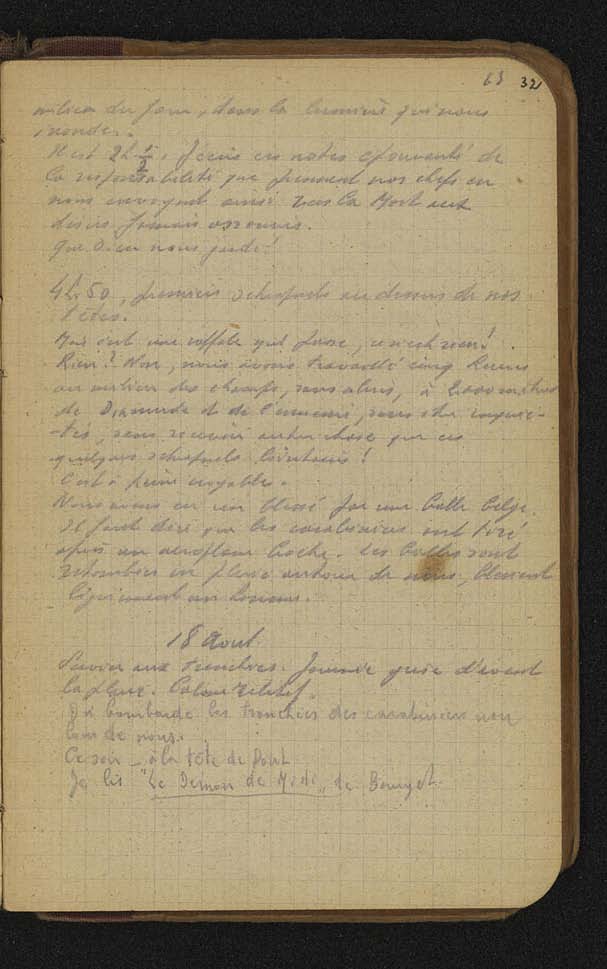 63 32
milieu du jour, dans la lumière qui nous
inonde.
Il est 2h 1/2, j'écris ces notes épouvanté de
la responsabilité que prennent nos chefs en
nous envoyant ainsi vers la Mort aux
désirs jamais assouvis.
Que Dieu nous garde!
4h.50, premiers schrapnels au dessus de nos
têtes.
Mais c'est une rafale qui passe, ce n'est rien!
Rien? Non, nous avons travaillé cinq heures
au milieu des champs, sans abris, à 2.000 mètres
de Dixmude et de l'ennemi, sans être inquié-
-tés, sans recevoir autre chose que ces
quelques schrapnels lointains!
C'est à peine croyable.
Nous avons eu un blessé par une balle belge.
Il faut dire que les carabiniers ont tiré
après un aéroplane boche. Les balles sont
retombées en pluie autour de nous, blessant
légèrement un homme.
18 Août
Service aux tranchées. Journée grise d'avant
la pluie. Calme relatif.
On bombarde les tranchées des carabiniers non
loin de nous.
Ce soir - à la tête de Pont
Je lis "Le Démon de Midi" de Bourget.